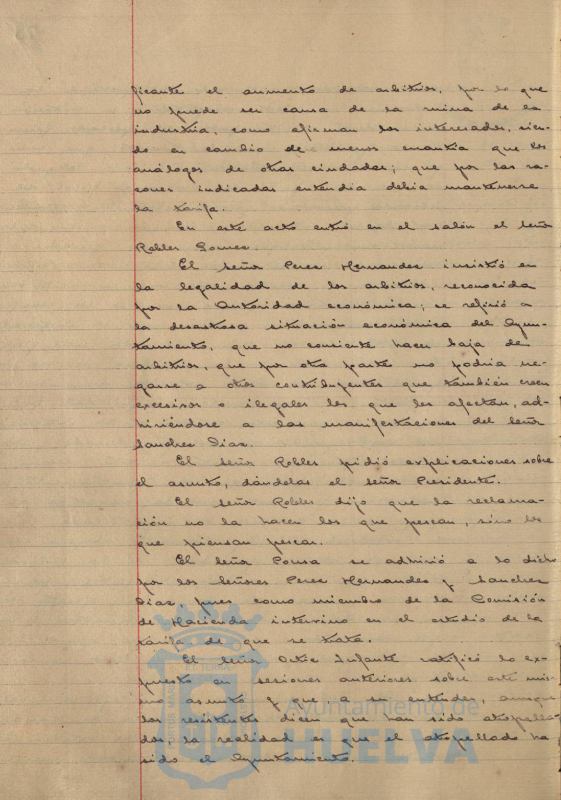 ficante el aumento de arbitrios, por lo que
no puede ser causa de la ruina de la
industria, como afirman los interesados, sien-
do en cambio de menos cuantia que los
análogos de otras ciudades; que por las ra-
zones indicadas entendia debia mantenerse
la tarifa.
En este acto entró en el salón el Señor
Robles Gomez.
El Señor Perez Hernandez insistió en
la legalidad de los arbitrios, reconocida
por la Autoridad económica; se refirió a
la desastrosa situación económica del Ayun-
tamiento, que no consiente hacer baja de
arbitrios, que por otra parte no podria ne-
garse a otros contribuyentes que también creen
excesivos o ilegales los que los afectan, ad-
hiriéndose a las manifestaciones del Señor
Sanchez Diaz.
El Señor Robles pidió explicaciones sobre
el asunto, dándolas el Señor Presidente.
El Señor Robles dijo que la reclama-
ción no la hacen los que pescan, sino los
que piensan pescar.
El Señor Pousa se adhirió a lo dicho
por los Señores Perez Hernandez y Sanchez
Diaz, pues como miembro de la Comisión
de Hacienda intervino en el estudio de la
tarifa de que se trata.
El Señor Ortiz Infante ratificó lo ex-
puesto en sesiones anteriores sobre este mis-
mo asunto y que a su entender, aunque
los resistentes dicen que han sido atropella-
dos, la realidad es que el atropellado ha
sido el Ayuntamiento.
Ayuntamiento de
HUELVA